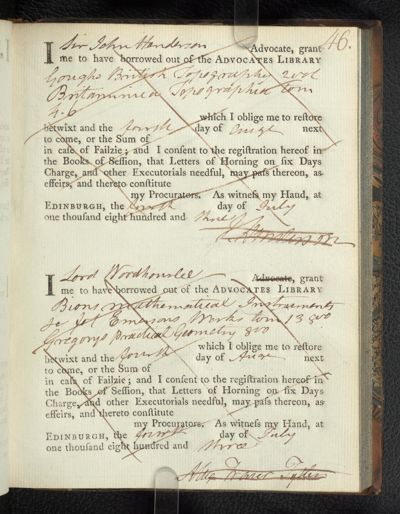 46.
I Sir John Henderson Advocate, grant
me to have borrowed out of the ADVOCATES LIBRARY
Goughs British Topography 2 vol
Britannica Topographia tom
which I oblige me to reſtore
betwixt and the fourth day of Augt next
to come, or the Sum of
in caſe of Failzie; and I conſent to the regiſtration hereof in
the Books of Seſſion, that Letters of Horning on ſix Days
Charge, and other Executorials needful, may paſs thereon, as
effeirs, and thereto conſtitute
my Procurators. As witneſs my Hand, at
EDINBURGH, the fourth day of July
one thouſand eight hundred and three
I Lord Woodhouslee Advocate, grant
me to have borrowed out of the ADVOCATES LIBRARY
Bions mathematical Instruments
fol Emersons Works tom 13 8vo
Gregorys Practical Geometry 8vo
betwixt and the fourth which I oblige me to reſtore
day of Augt next
to come, or the Sum of
in caſe of Failzie; and I conſent to the regiſtration hereof in
the Books of Seſſion, that Letters of Horning on ſix Days
Charge, and other Executorials needful, may paſs thereon, as
effeirs, and thereto conſtitute
my Procurators. As witneſs my Hand, at
EDINBURGH, the fourth day of July
one thouſand eight hundred and three
Alexr Fraser Tytler